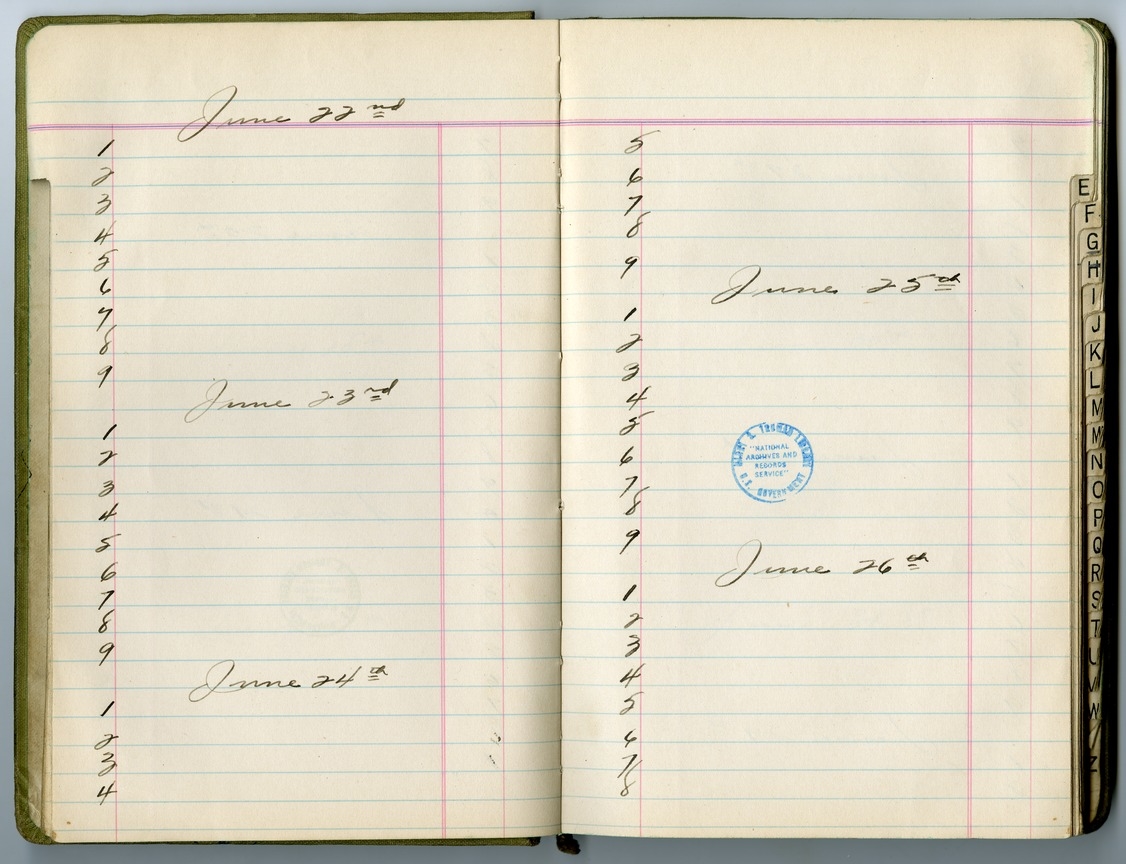 June 22nd
1
2
3
4
5
6
7
8
9
June 23rd
1
2
3
4
5
6
7
8
9
June 24th
1
2
3
4
5
6
7
8
9
June 25th
1
2
3
4
5
6
7
8
9
June 26th
1
2
3
4
5
6
7
8
HARRY S. TRUMAN LIBRARY
"NATIONAL
ARCHIVES AND
RECORDS
SERVICE"
U.S. GOVERNMENT
E
F
G
H
I
J
K
L
M
Mc
N
O
P
Q
R
S
T
U
V
W
Z